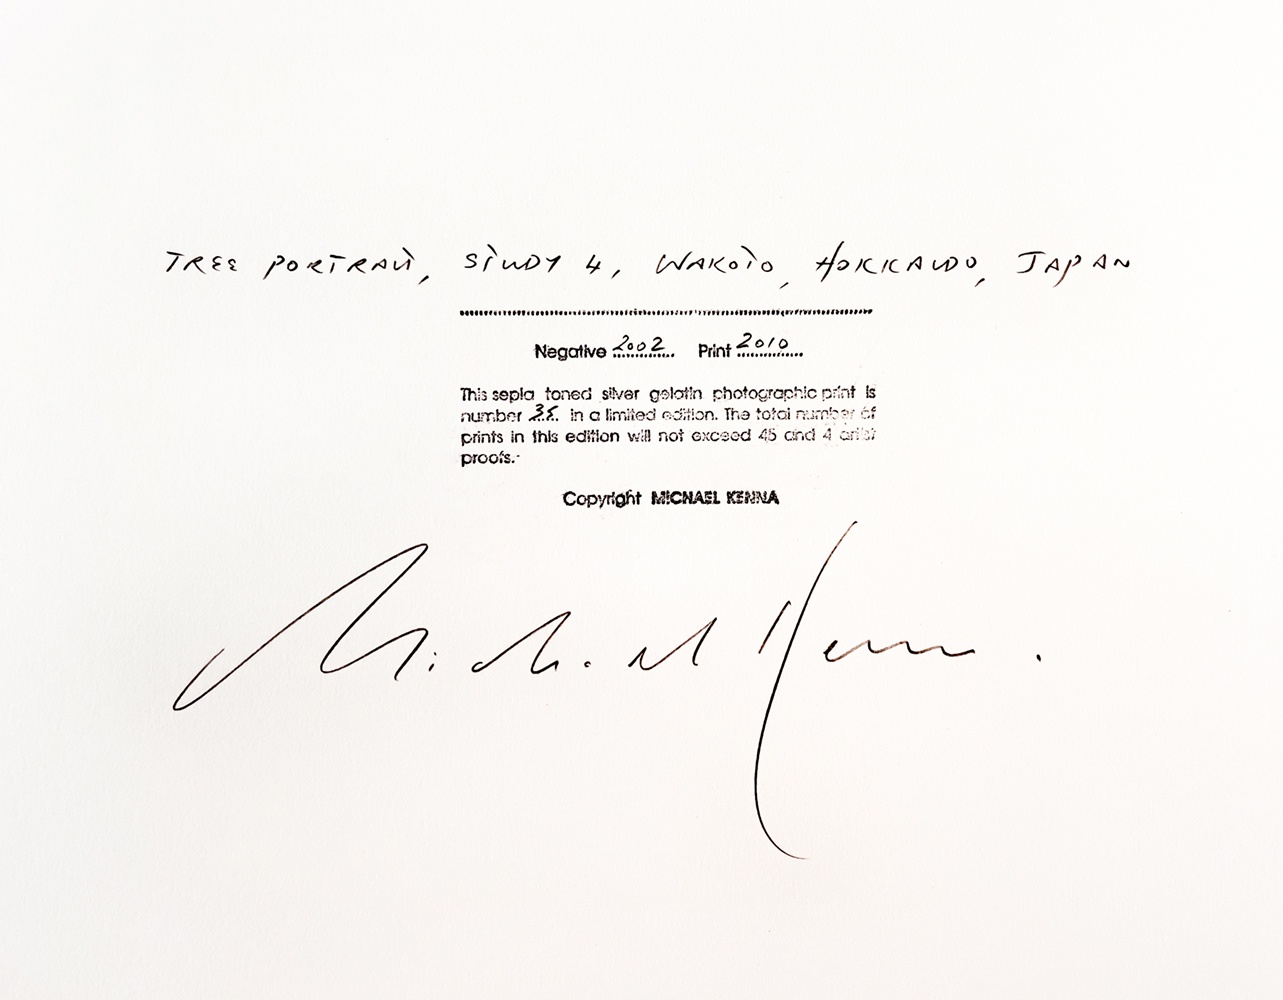 TREE PORTRAIT, STUDY 4, WAKOTO, HOKKAIDO, JAPAN
Negative 2002 Print 2010
This sepia toned silver gelatin photographic print is
number 35. in a limited edition. The total number of
prints in this edition will not exceed 45 and 4 artist
proofs.
Copyright MICHAEL KENNA
Michael Kenna.